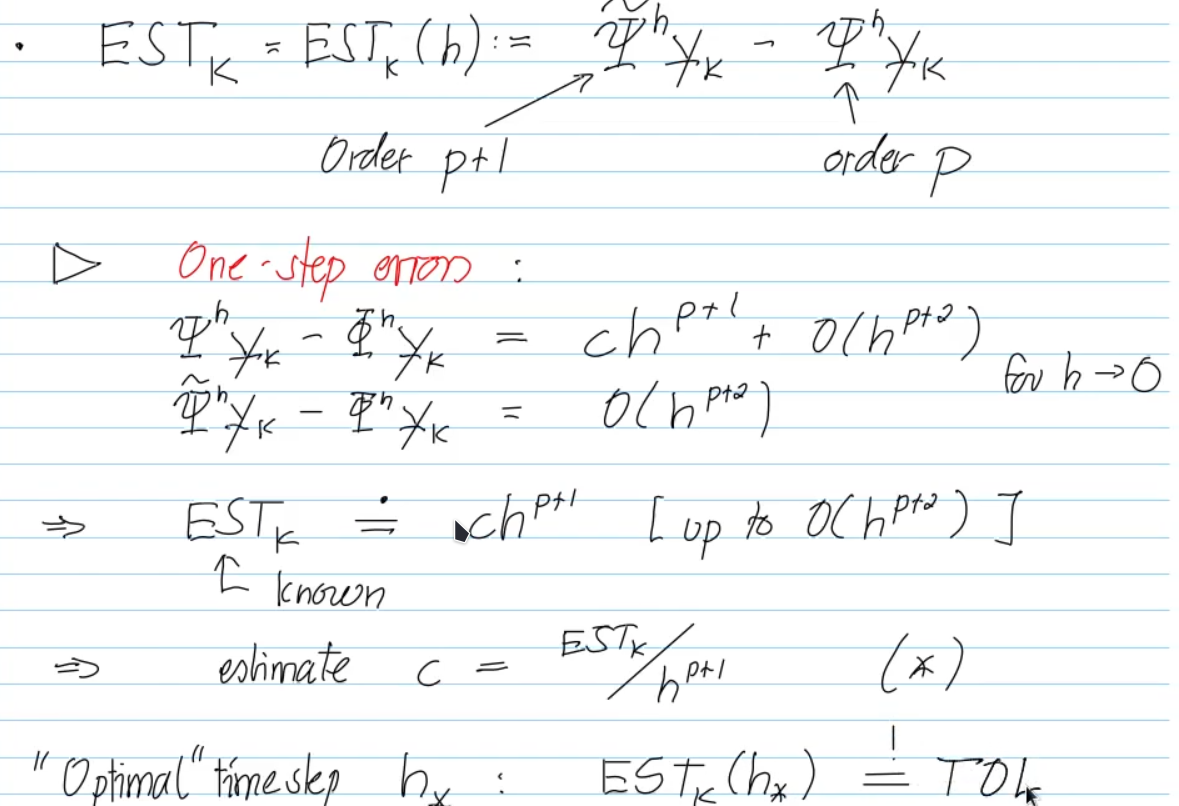 · EST_K = EST_K(h) := Ψ̃^h y_K - Ψ^h y_K
Order p+1 order p
▷ One-step errors :
Ψ^h y_K - Φ^h y_K = ch^{p+1} + O(h^{p+2})
for h → 0
Ψ̃^h y_K - Φ^h y_K = O(h^{p+2})
⇒ EST_K ≐ ch^{p+1} [up to O(h^{p+2})]
↑ known
⇒ estimate c = EST_K / h^{p+1} (*)
"Optimal" timestep h_* : EST_K(h_*) =! TOL